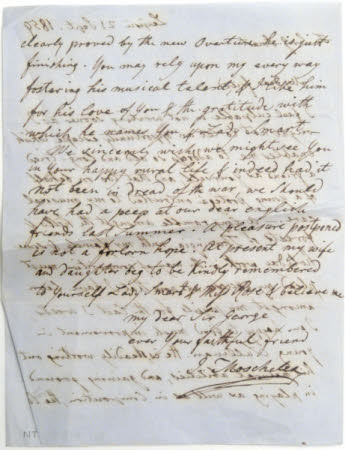 clearly proved by the new Overture he is just
finishing. You may rely upon my every way
fostering his musical talent & I like him
for his love of You & the gratitude with
which he names You & Lady Smart.
We sincerely wish we might see You
in Your happy rural life & indeed had it
not been in dread of the war, we should
have had a peep at our dear english
friends last summer. A pleasure postponed
is not a forlorn hope. At present my wife
and daughter beg to be kindly remembered
to Yourself Lady Smart & Miss Rose & believe me
my dear Sir George
ever Your faithful friend
Moscheles